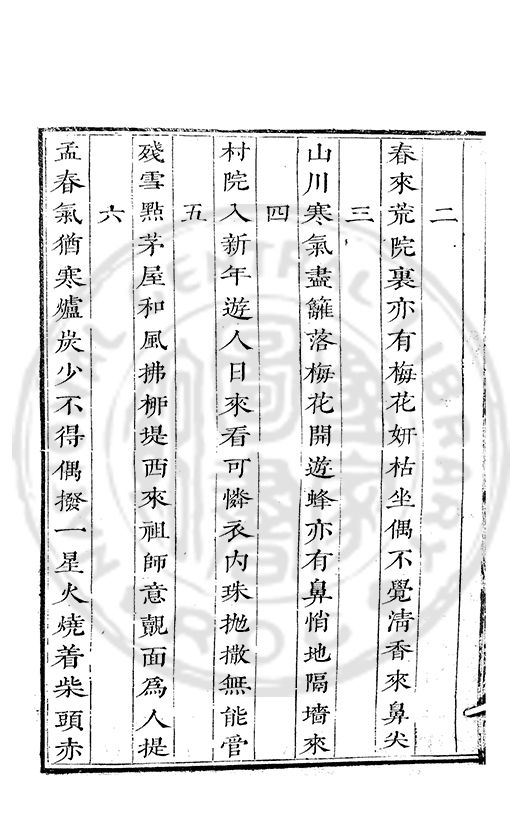 二
春來荒院裏亦有梅花妍枯坐偶不覺清香來鼻尖
三
山川寒氣盡籬落梅花開遊蜂亦有鼻悄地隔墻來
四
村院入新年遊人日來看可憐衣內珠拋撒無能管
五
殘雪點茅屋和風拂桺堤西來祖師意覿面為人提
六
孟春氣猶寒爐炭少不得偶撥一星火燒着柴頭赤